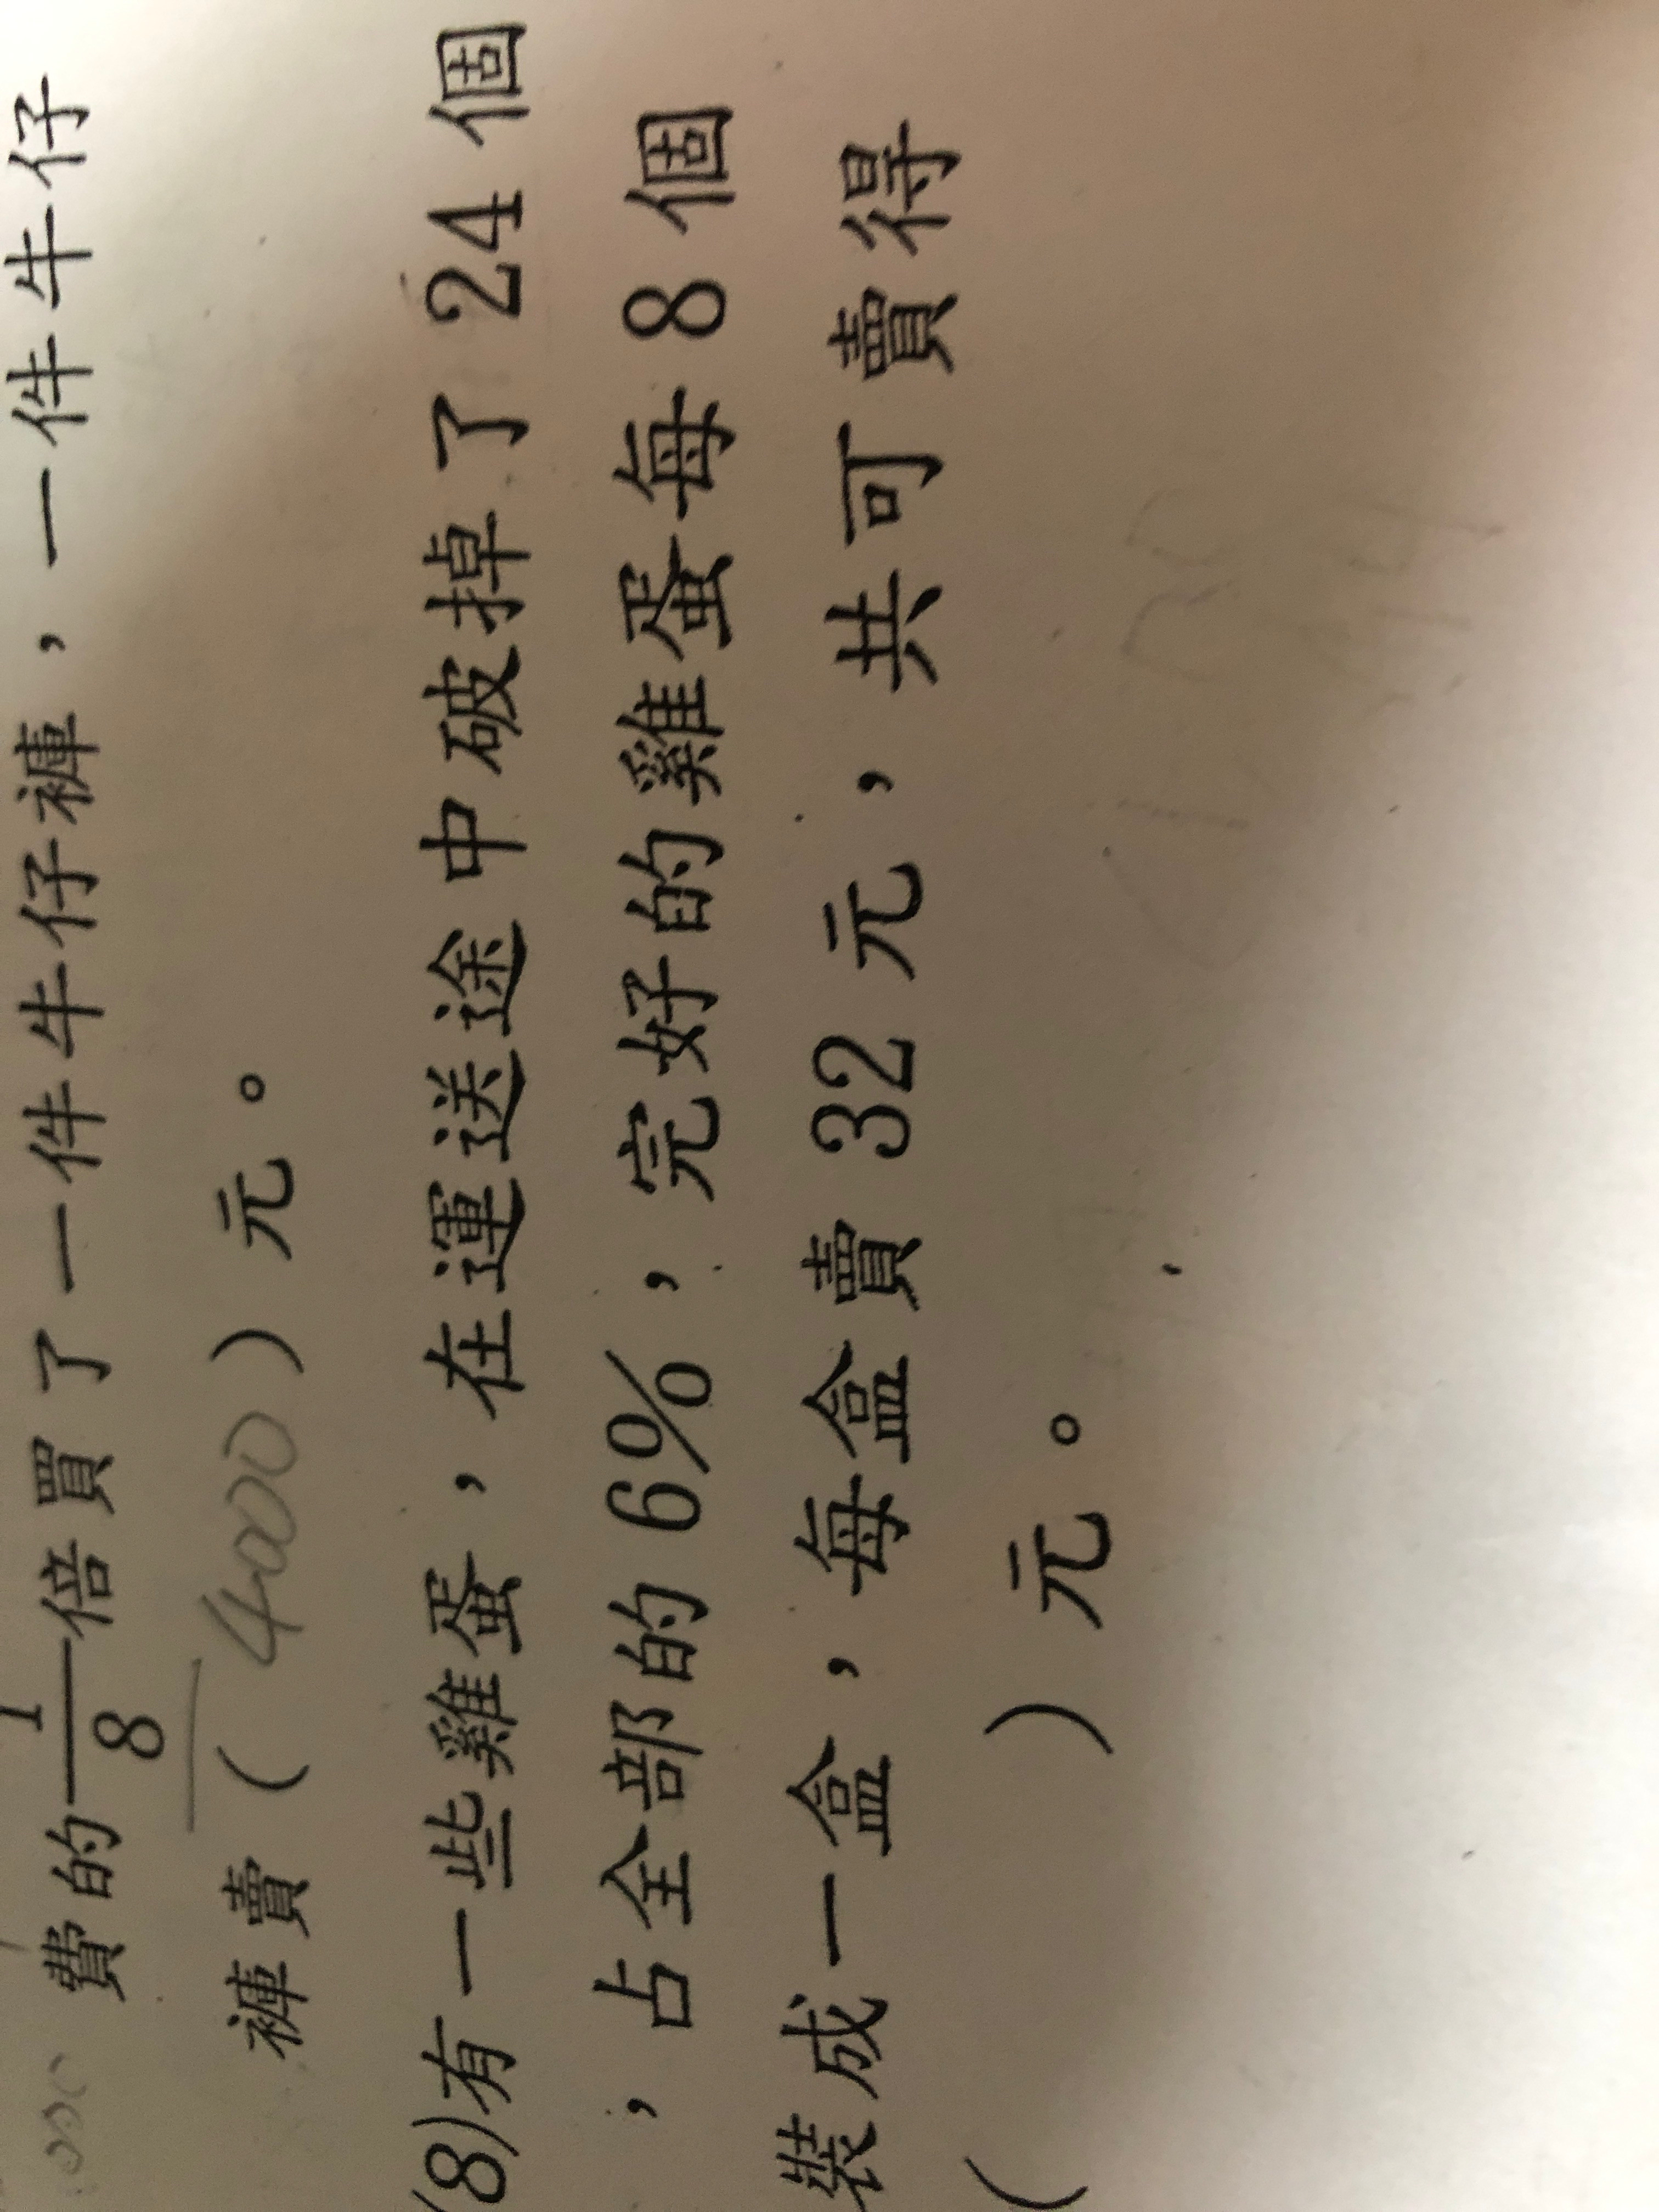 費的1/8倍買了一件牛仔褲，一件牛仔
褲賣（4000）元。
(8)有一些雞蛋，在運送途中破掉了24個
，占全部的6%，完好的雞蛋每8個
裝成一盒，每盒賣32元，共可賣得
（ ）元。